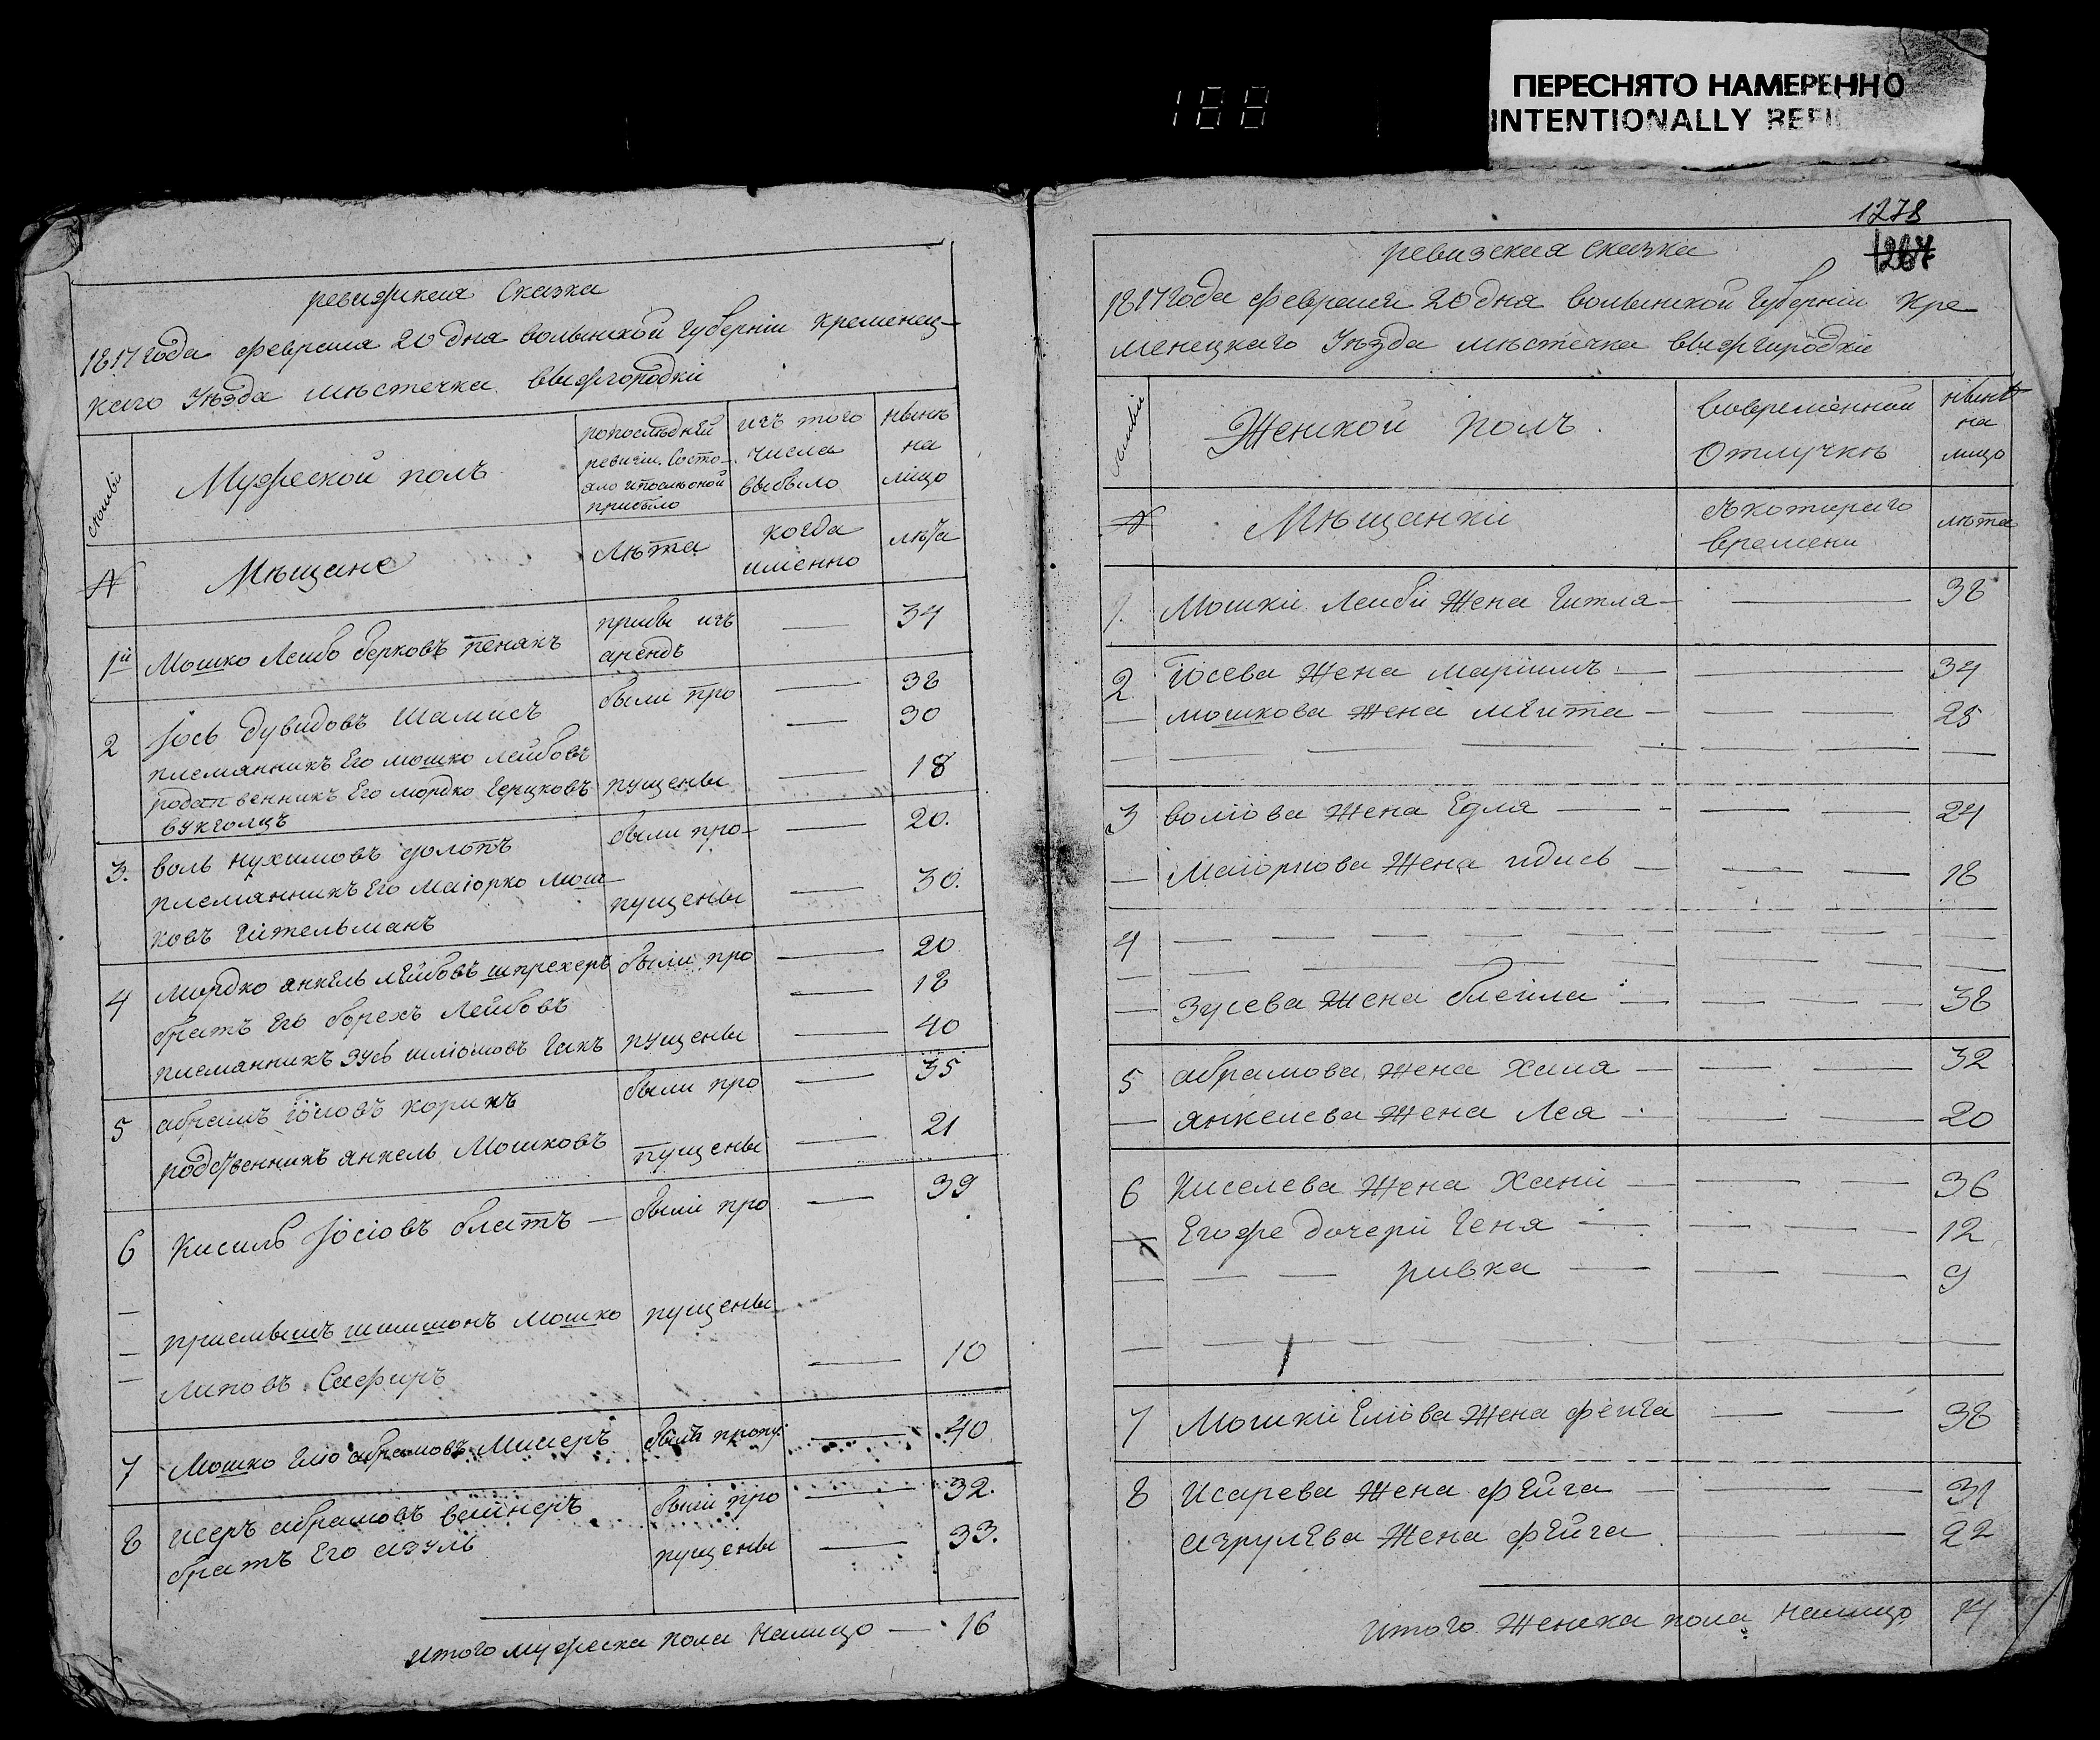 188
ПЕРЕСНЯТО НАМЕРЕННО
INTENTIONALLY REFIL
ревижскыя Сказка
1817 года февраля 20 дня волынской Губерніи Кременец-
каго Уѣзда мѣстечка вышгородкіи
Семьи
Мужеской полъ
попослѣдней
ревизіи. Состо-
яло ипосльоной
прибыло
изъ того
числа
выбыло
нынѣ
на
лицо
№
Мѣщане
лѣта
когда
именно
лѣта
1й Мошко Леибо берковъ пенякъ прибы изъ арендъ — 34
2 Іось дувидовъ шамисъ были про — 38
племянникъ Его мошко лейбовъ — 30
родственникъ Его мордко Герцковъ пущены — 18
букголцъ
3. воль нухимовъ золотъ были про- — 20.
племянникъ Его маіорко мош- пущены — 30.
ковъ гительманъ
4 мордко янкель лейбовъ шпрехеръ были про — 20
братъ Его борехъ лейбовъ — 18
писмянникъ зусь шліомовъ гакъ пущены — 40
5 абрамъ іосіовъ корикъ были про — 35
родственникъ янкель Мошковъ пущены — 21
6 Кисиль Іосіовъ блатъ — были про — 39
приемышъ шимшонъ мошко пущены
липовъ Сафиръ — 10
7 Мошко Еліо абрамовъ Милеръ былъ пропу: — 40
8 исеръ абрамовъ вейнеръ были про — 32.
братъ Его азуль пущены — 33.
итого мужеска пола налицо — 16
1278
1267
ревизская сказка
1817 года февраля 20 дня волынской Губерніи Кре
менецкаго Уѣзда мѣстечка вышгиродкіи
Семьи
Женской полъ.
вовременной
Отлучкѣ
нынѣ
на
лицо
№
Мѣщанкіи
съкотораго
времени
лѣта
1. Мошкіи Леибіи Жена Гитля — — 38
2 Іосева Жена маріимъ — — 34
— мошкова Жена мѣита — — — 25
3 воліова Жена Едля — — — 24
— Маіоркова Жена идись — — — 18
4
— Зусева Жена блейла — — — 38
5 абрамова жена Халя — — — 32
— янкелева Жена Лея — — — 20
6 Киселева Жена Хани — — — 36
— Егоже дочери Геня — — — 12
— — — ривка — — — 9
7 Мошкіи Еліова Жена фейга — — 38
8 Исарева Жена фейга — — — 31
азрулева Жена фейга — — 22
итого Женска пола налицо 14